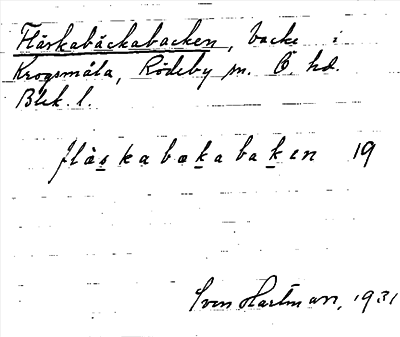 Fläskabäckabacken, backe i
Krogsmåla, Rödeby sn. Ö. hd.
Blek. l.
fläskabækabaken 19
Sven Hartman, 1931